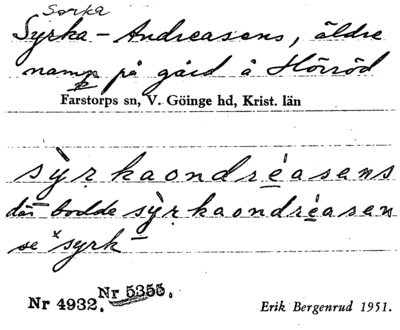 Sorka
Syrka-Andreasens, äldre
namn på gård å Hörröd
Farstorps sn, V. Göinge hd, Krist. län
sỳrkaondréasens
där bodde sỳrkaondréasen
se *syrk-
Nr 4932. Nr 5355.
Erik Bergenrud 1951.